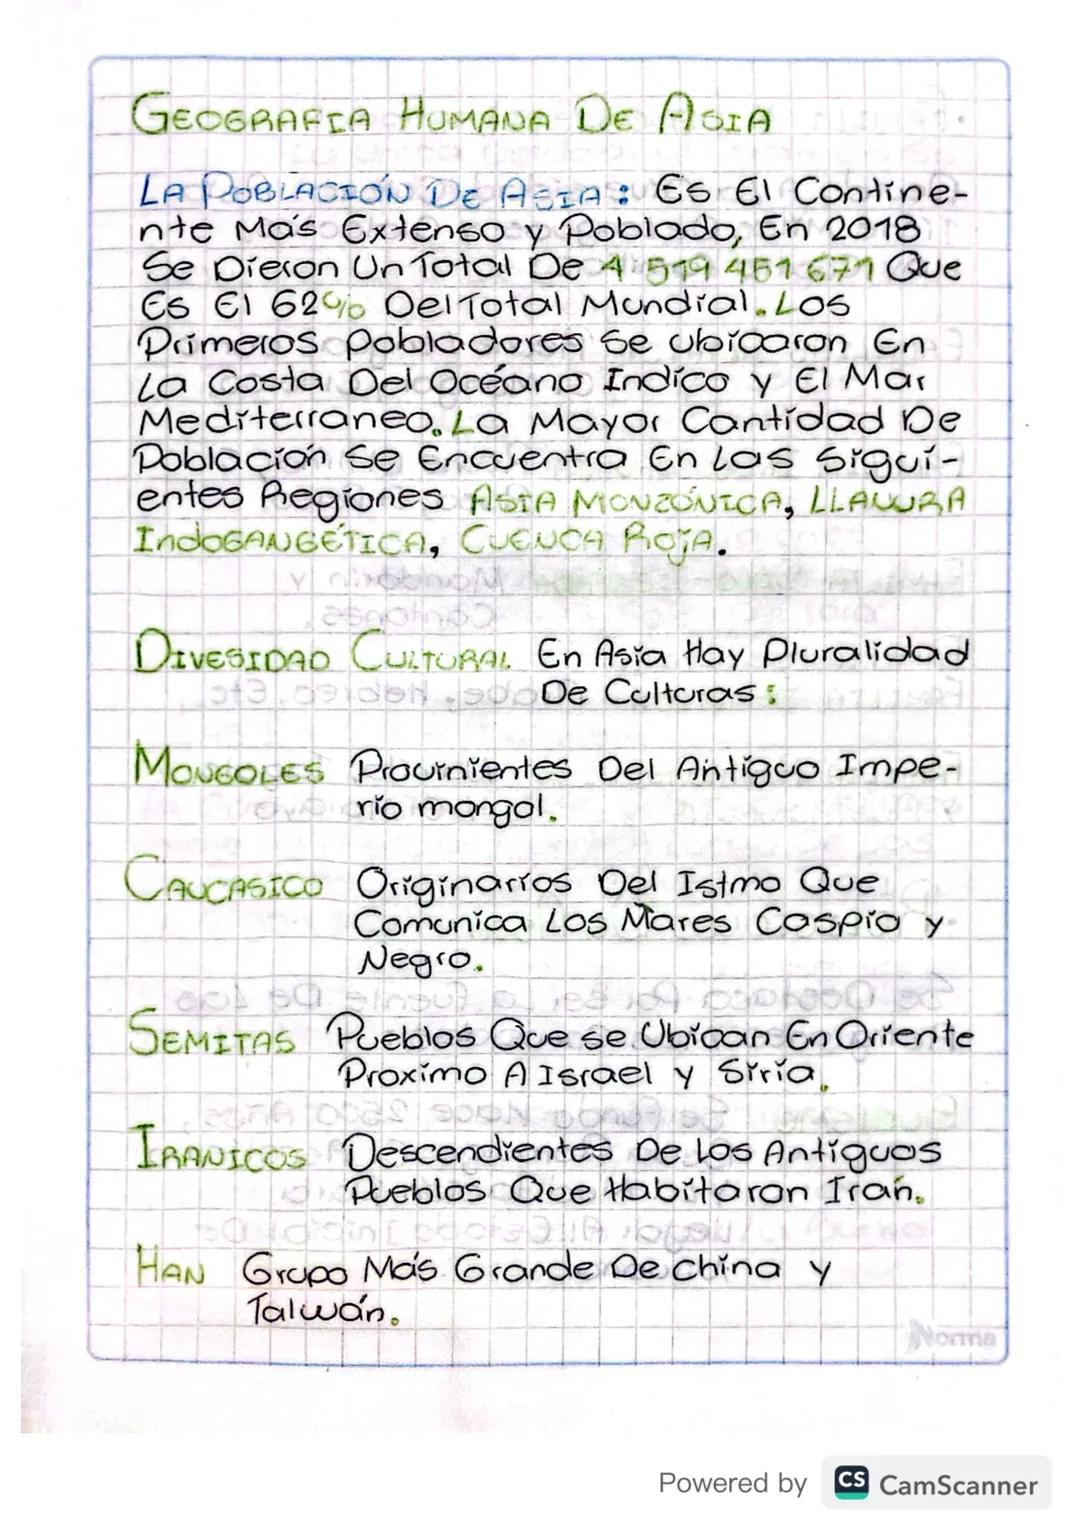 GEOGRAFIA HUMANA DE ASIA
LA POBLACIÓN DE ASIA: Es El Contine-
nte Más Extenso y Poblado, En 2018
Se Dieron Un Total De 4 519 451 671 Que
Es El 62% Del Total Mundial. Los
Primeros Pobladores Se ubicaron En
La Costa Del Océano Indico y El Mar
Mediterraneo. La Mayor Cantidad De
Población Se Encuentra En Las Sigui-
entes Regiones ASIA MONZÓNICA, LLANURA
IndoGANGÉTICA, CUENCA ROJA.
DIVESIDAD CULTURAL En Asia Hay Pluralidad
De Culturas:
MONGOLES Provinientes Del Antiguo Impe-
rio mongol.
CAUCASICO Originarios Del Istmo Que
Comunica Los Mares Caspio y
Negro.
SEMITAS Pueblos Que se Ubican En Oriente
Proximo A Israel y Siria.
IRANICOS Descendientes De Los Antiguos
Pueblos Que Habitaron Irán.
HAN Grupo Más Grande De China y
Taiwán.
Norma
Powered by CS CamScanner